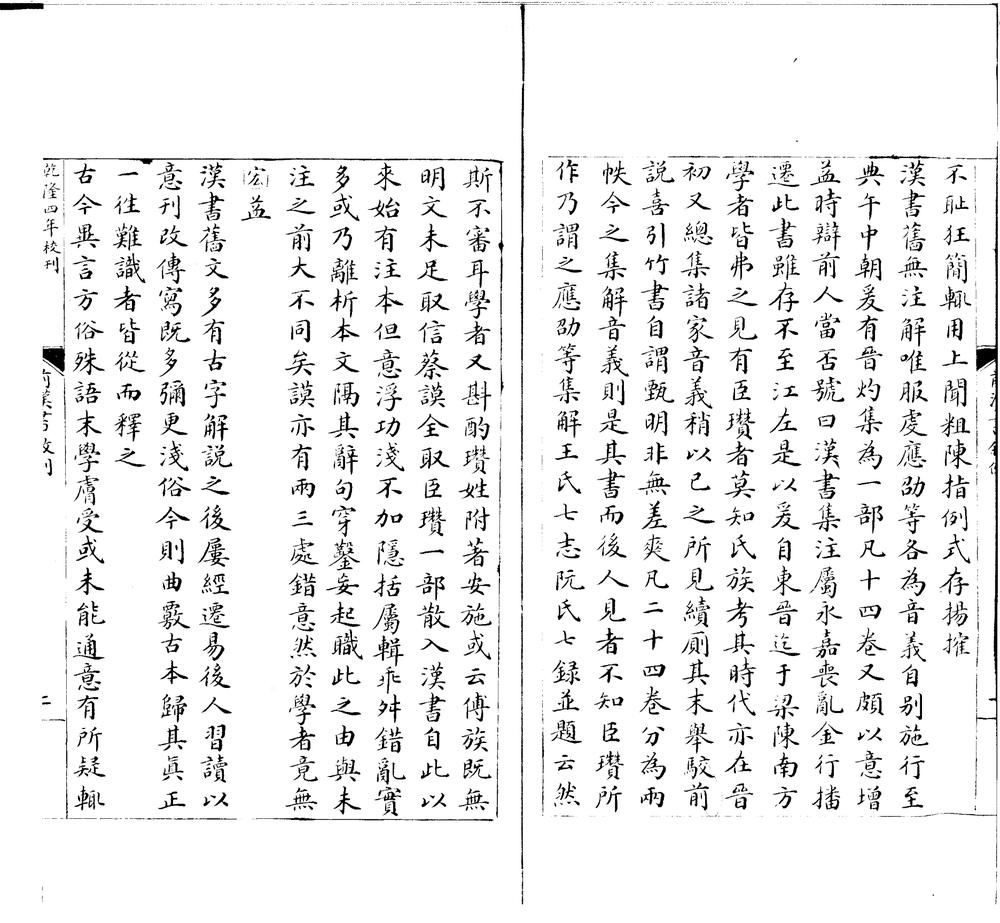 不恥狂簡輙用上聞粗陳指例式存揚搉
漢書舊無注解唯服虔應劭等各為音義自别施行至
典午中朝爰有晉灼集為一部凡十四卷又頗以意增
益時辯前人當否號曰漢書集注屬永嘉喪亂金行播
遷此書雖存不至江左是以爰自東晉迄于梁陳南方
學者皆弗之見有臣瓚者莫知氏族考其時代亦在晉
初又總集諸家音義稍以己之所見續厠其末舉駮前
説喜引竹書自謂甄明非無差爽凡二十四卷分為兩
帙今之集解音義則是其書而後人見者不知臣瓚所
作乃謂之應劭等集解王氏七志阮氏七録並題云然
斯不審耳學者又斟酌瓚姓附著安施或云傅族既無
明文未足取信蔡謨全取臣瓚一部散入漢書自此以
來始有注本但意浮功淺不加隱括屬輯乖舛錯亂實
多或乃離析本文隔其辭句穿鑿妄起職此之由與未
注之前大不同矣謨亦有兩三處錯意然於學者竟無
宏益
漢書舊文多有古字解説之後屢經遷易後人習讀以
意刊改傳寫既多彌更淺俗今則曲覈古本歸其眞正
一往難識者皆從而釋之
古今異言方俗殊語末學膚受或未能通意有所疑輙
乾隆四年校刊
前漢書敘例
二